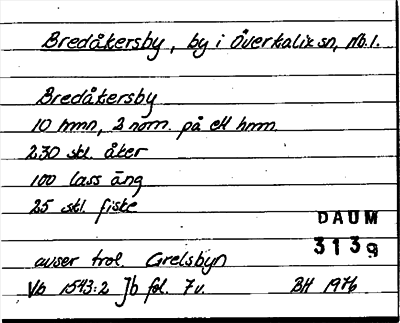 Bredåkersby, by i Överkalix sn, Nb. l.
Bredåkersby
10 hmn, 2 nom. på ett hmn.
230 skl. åker
100 lass äng
25 skl. fiske
DAUM
3139
avser trol. Grelsbyn
Vb 1543:2 Jb fol. 7v. BH 1976